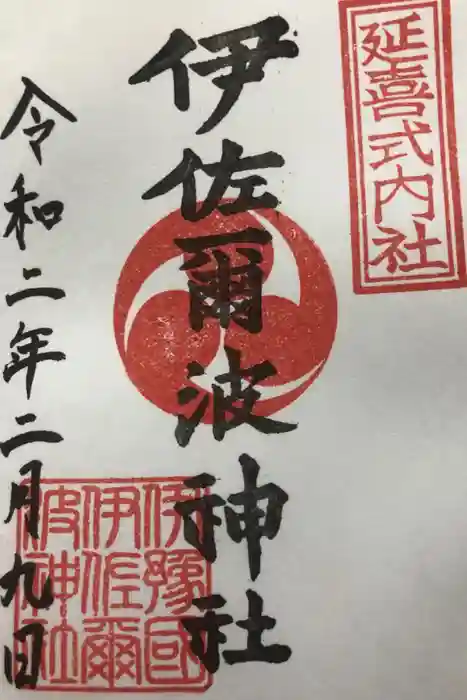 延喜式内社
伊佐爾波神社
伊豫國
伊佐爾
波神社
令和二年二月九日